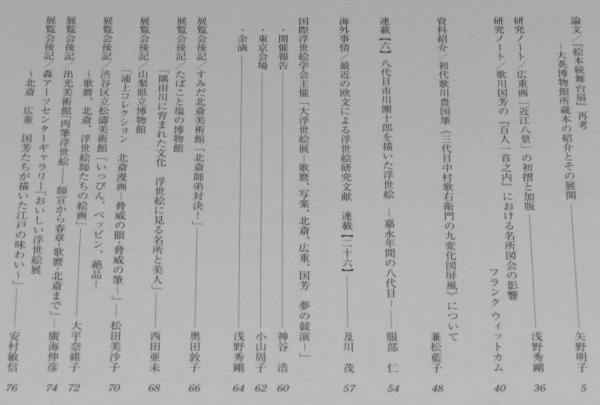 論文／『絵本続舞台扇』再考
―大英博物館所蔵本の紹介とその展開― 矢野明子 5
研究ノート／広重画「近江八景」の初摺と加版 浅野秀剛 36
研究ノート／歌川国芳の『百人一首之内』における名所図会の影響
フランク ウィットカム 40
資料紹介／初代歌川豊国筆《三代目中村歌右衛門の九変化図屏風》について 兼松藍子 48
連載【六】 八代目市川團十郎を描いた浮世絵 ―嘉永年間の八代目― 服部 仁 54
海外事情／最近の欧文による浮世絵研究文献 連載【二十六】 及川 茂 57
国際浮世絵学会主催「大浮世絵展―歌麿、写楽、北斎、広重、国芳 夢の競演―」
・開催報告 神谷 浩 60
・東京会場 小山周子 62
・余滴 浅野秀剛 64
展覧会後記／すみだ北斎美術館「北斎師弟対決！」 奥田敦子 66
展覧会後記／たばこと塩の博物館
「隅田川に育まれた文化 浮世絵に見る名所と美人」 西田亜未 68
展覧会後記／山梨県立博物館
「浦上コレクション 北斎漫画―脅威の眼・脅威の筆―」 松田美沙子 70
展覧会後記／渋谷区立松濤美術館「いっぴん、ベッピン、絶品！
～歌麿、北斎、浮世絵師たちの絵画」 大平奈緒子 72
展覧会後記／出光美術館「肉筆浮世絵―師宣から春章・歌麿・北斎まで」 廣海伸彦 74
展覧会後記／森アーツセンターギャラリー「おいしい浮世絵展
～北斎 広重 国芳たちが描いた江戸の味わい～」 安村敏信 76